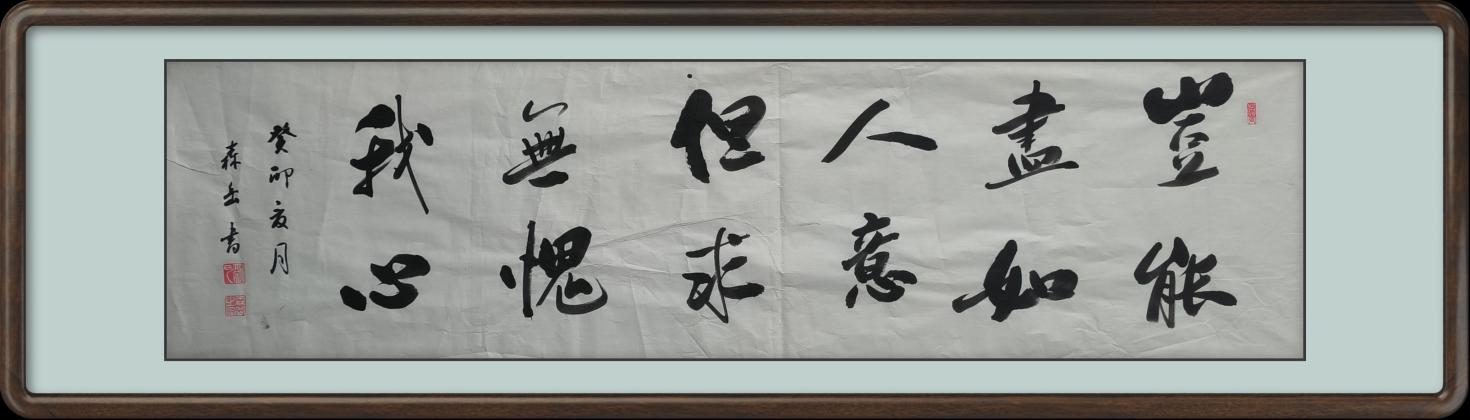 豈能
盡如
人意
但求
無愧
我心
癸卯亥月
森岳書